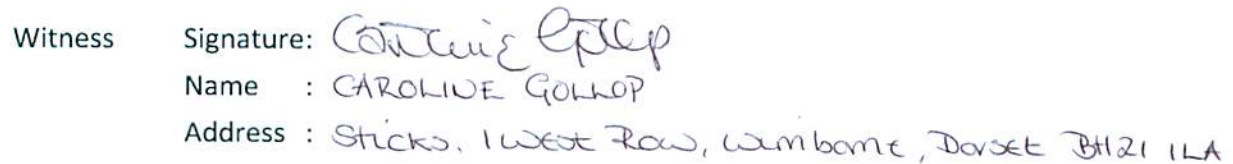 Witness Signature: Caroline Gollop
Name : CAROLINE GOLLOP
Address : Sticks, 1 West Row, Wimborne, Dorset BH21 1LA